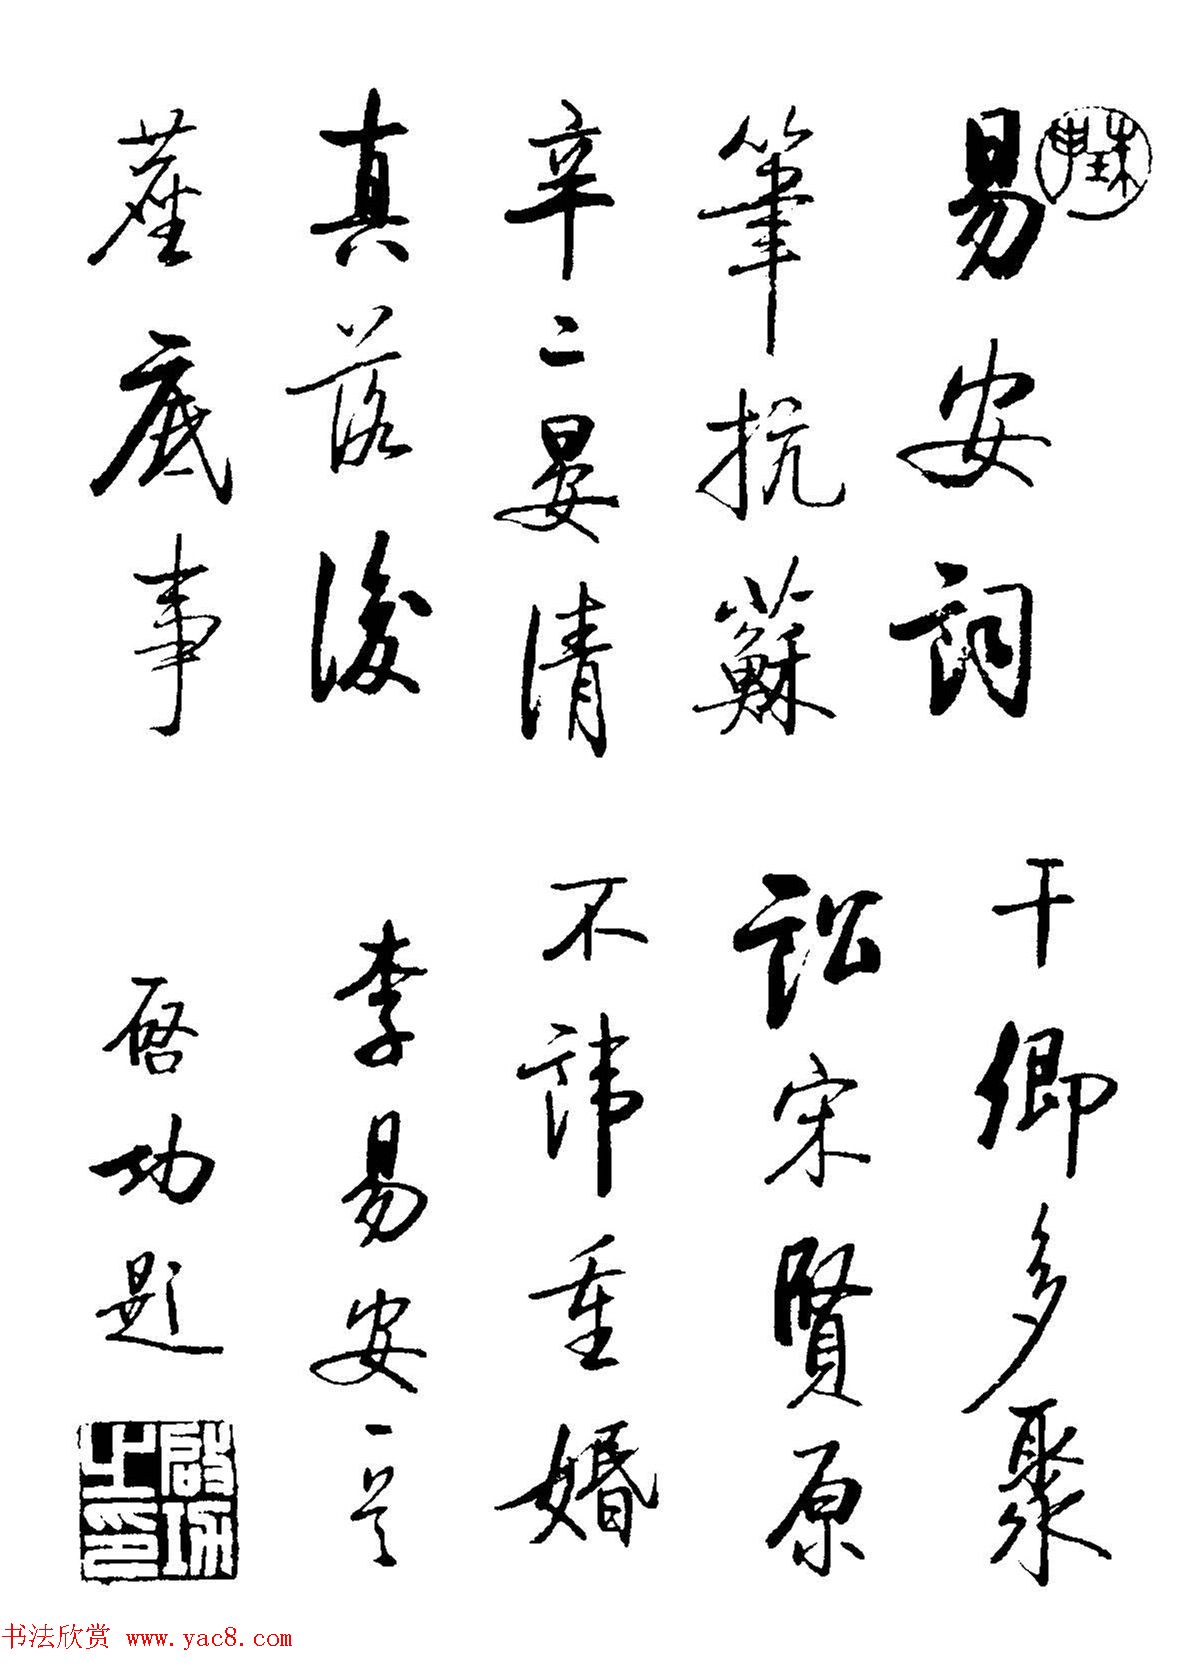 珠申
易安詞
筆抗蘇
辛二晏清
真落後
塵底事
干卿多聚
訟宋賢原
不諱重婚
李易安一首
啓功題
啟功之印
书法欣赏 www.yac8.com